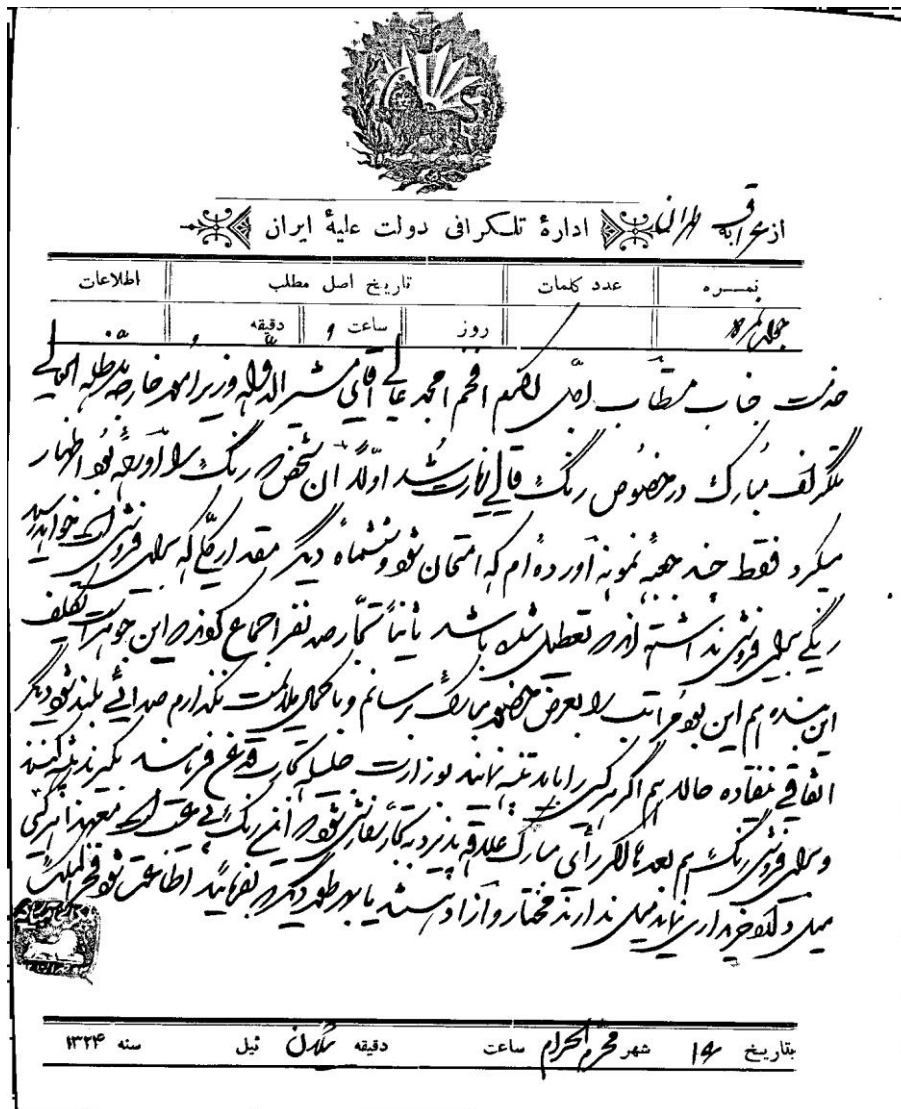 از عراق به طهران
ادارهٔ تلگرافی دولت علیهٔ ایران
نمــره عدد کلمات تاریخ اصل مطلب اطلاعات
جواب نمره روز ساعت دقیقه
خدمت جناب مستطاب اجل اکرم افخم امجد عالی آقای مشیر الدوله وزیر امور خارجه مد ظله العالی
تلگراف مبارک در خصوص رنگ قالی زیارت شد اولاً آن شخص که رنگ را آورده بود اظهار
میکرد فقط چند جعبه نمونه آورده‌ام که امتحان شود و ششماه دیگر مقدار کلی که برای فروش است خواهد رسید
رنگی برای فروش نداشته‌اند که تعطیل شده باشد ثانیاً تجار صد نفر اجماع کردند که این جوهر است تکلیف
این بنده هم این بود مراتب را بعرض حضور مبارک برسانم و با کمال ملایمت نگذارم صدائی بلند شود دیگر
اتفاقی نیفتاده حالا هم اگر هر کس را باید تنبیه نمایند بوزارت جلیله تجارت قدغن فرمایند بگیرند تنبیه کنند
و برای فروش رنگ هم بعدها اگر رأی مبارک علاقه پذیرد به تجار سفارش شود که این رنگ بی عیب است معهذا هر کس
میل دارد خریداری نماید میل ندارند مختار و آزاد هستند یا بهر طور دیگر که بفرمایند اطاعت شود فخرالملک
بتاریخ ۱۴ شهر محرم الحرام ساعت دقیقه قبل سنه ۱۳۲۴